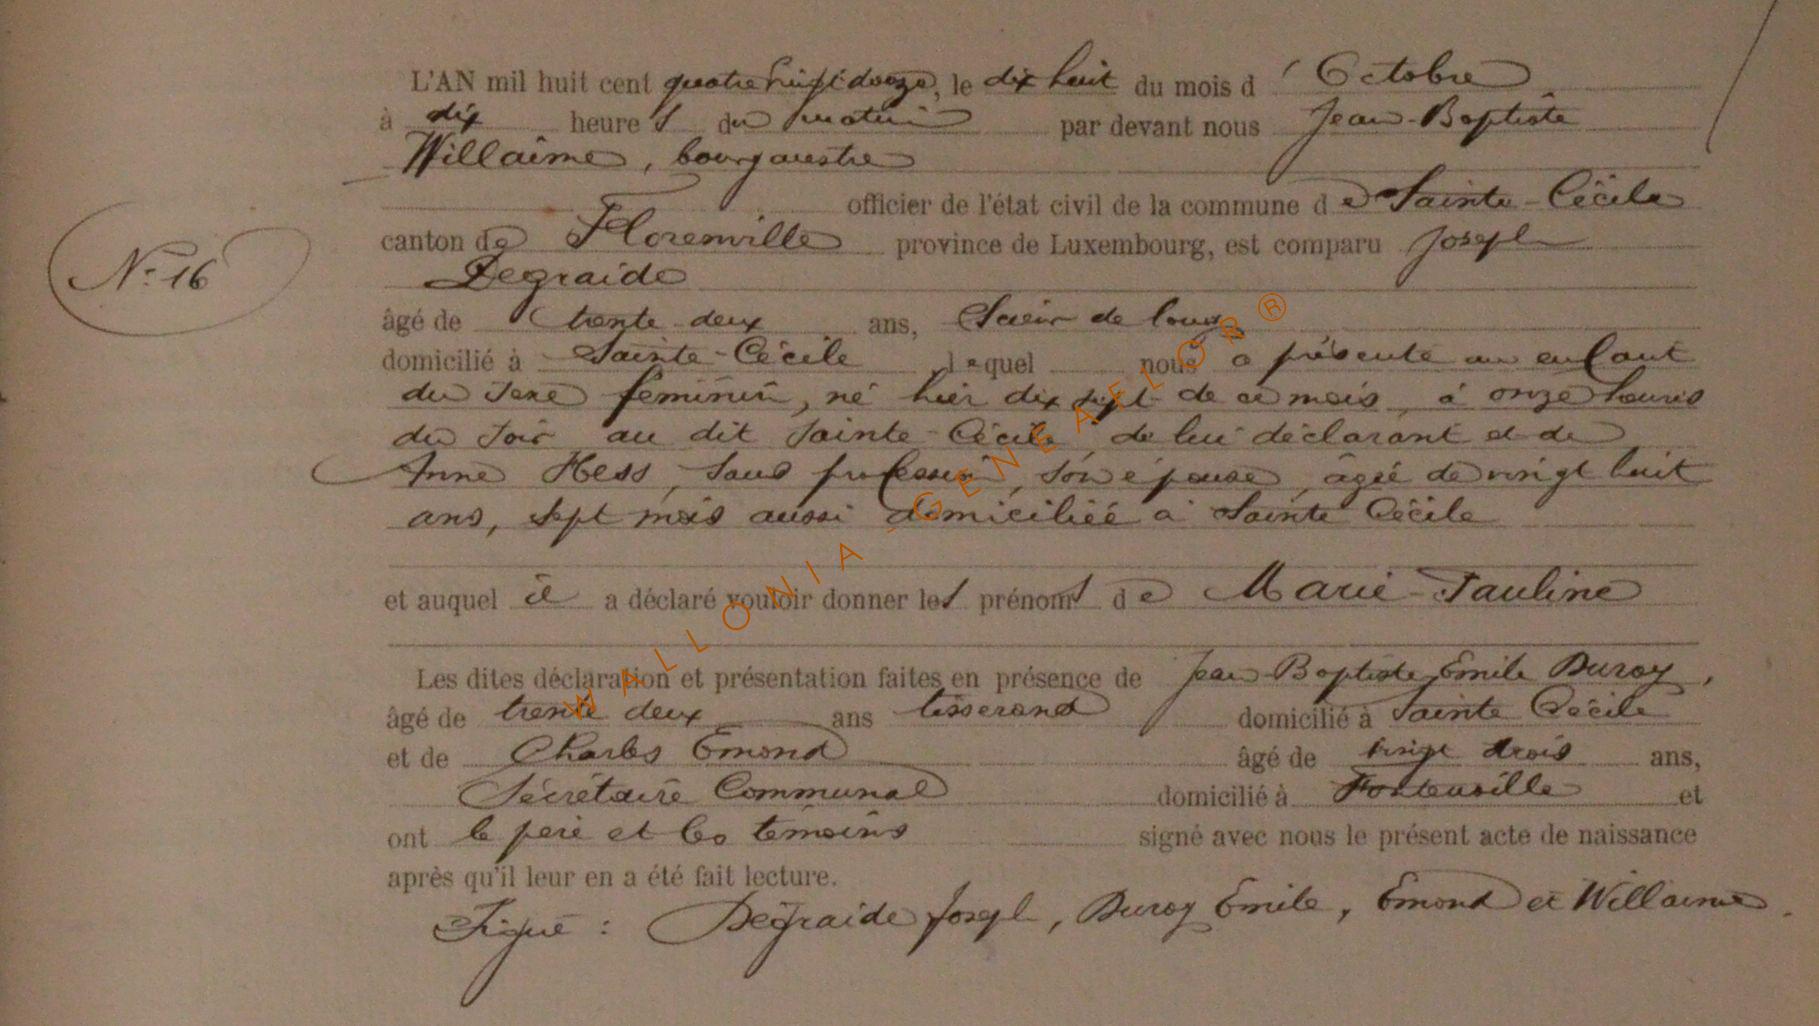 L'AN mil huit cent quatre vingt douze, le dix huit du mois d' Octobre
à dix heures du matin par devant nous Jean-Baptiste
Willaime, bourgmestre
officier de l'état civil de la commune de Sainte-Cécile
canton de Florenville province de Luxembourg, est comparu Joseph
Degraide
N° 16
âgé de trente-deux ans, Scieur de long
domicilié à Sainte-Cécile, lequel nous a présenté un enfant
du sexe féminin, né hier dix sept de ce mois, à onze heures
du soir au dit Sainte-Cécile, de lui déclarant et de
Anne Hess, sans profession, son épouse, âgée de vingt huit
ans, sept mois aussi domiciliée à Sainte Cécile
et auquel il a déclaré vouloir donner les prénoms de Marie-Pauline
Les dites déclaration et présentation faites en présence de Jean-Baptiste Emile Duroy,
âgé de trente deux ans tisserand domicilié à Sainte Cécile
et de Charles Emond âgé de vingt trois ans,
Sécrétaire Communal domicilié à Fontenoille et
ont le père et les témoins signé avec nous le présent acte de naissance
après qu'il leur en a été fait lecture.
Signé : Degraide Joseph, Duroy Emile, Emond et Willaime.
WALLONIA-GENEAFLOR®